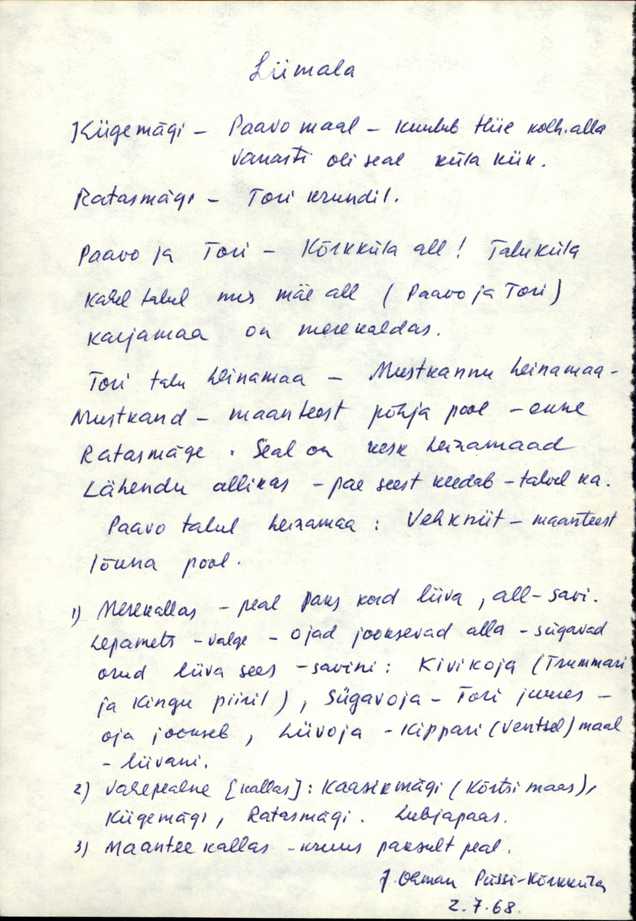 Liimala
Kiigemägi – Paavo maal – kuulub Hiie kolh. alla
vanasti oli seal küla kiik.
Ratasmägi – Tori krundil.
Paavo ja Tori – Kõrkküla all! Taluküla
kahel talul mäe all (Paavo ja Tori)
karjamaa on merekaldas.
Tori talu heinamaa – Mustkannu heinamaa –
Mustkand – maanteest põhja pool – enne
Ratasmäge. Seal on kesk heinamaad
Lähendu allikas – pae seest keedab – talvel ka.
Paavo talul heinamaa: Vehkniit – maanteest
lõuna pool.
1) Merekallas – peal paks kord liiva, all – savi.
Lepamets – valge – ojad jooksevad alla – sügavad
orud liiva sees – savini: Kivikoja (Trummari
ja Kingu piiril), Sügavoja – Tori juures –
oja jookseb, Liivoja – Kippari (Ventsel) maal
– liivani.
2) Vahepealne [kallas]: Kaasikmägi (Kõrtsi maas),
Kiigemägi, Ratasmägi. Lubjapaas.
3) Maantee kallas – kruus paksult peal.
J. Ohman Püssi-Kõrkküla
2.7.68.